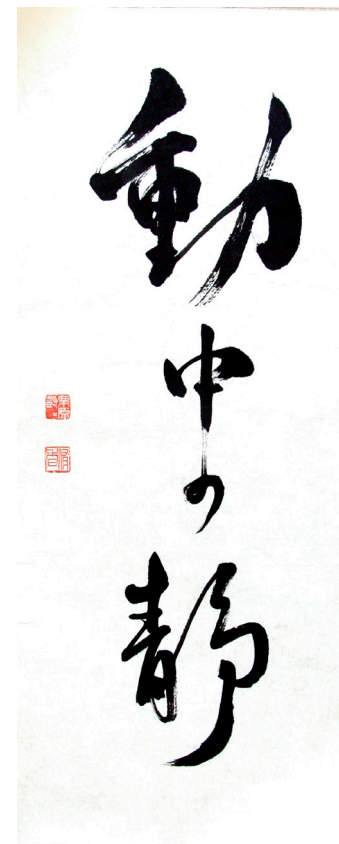 動中の静